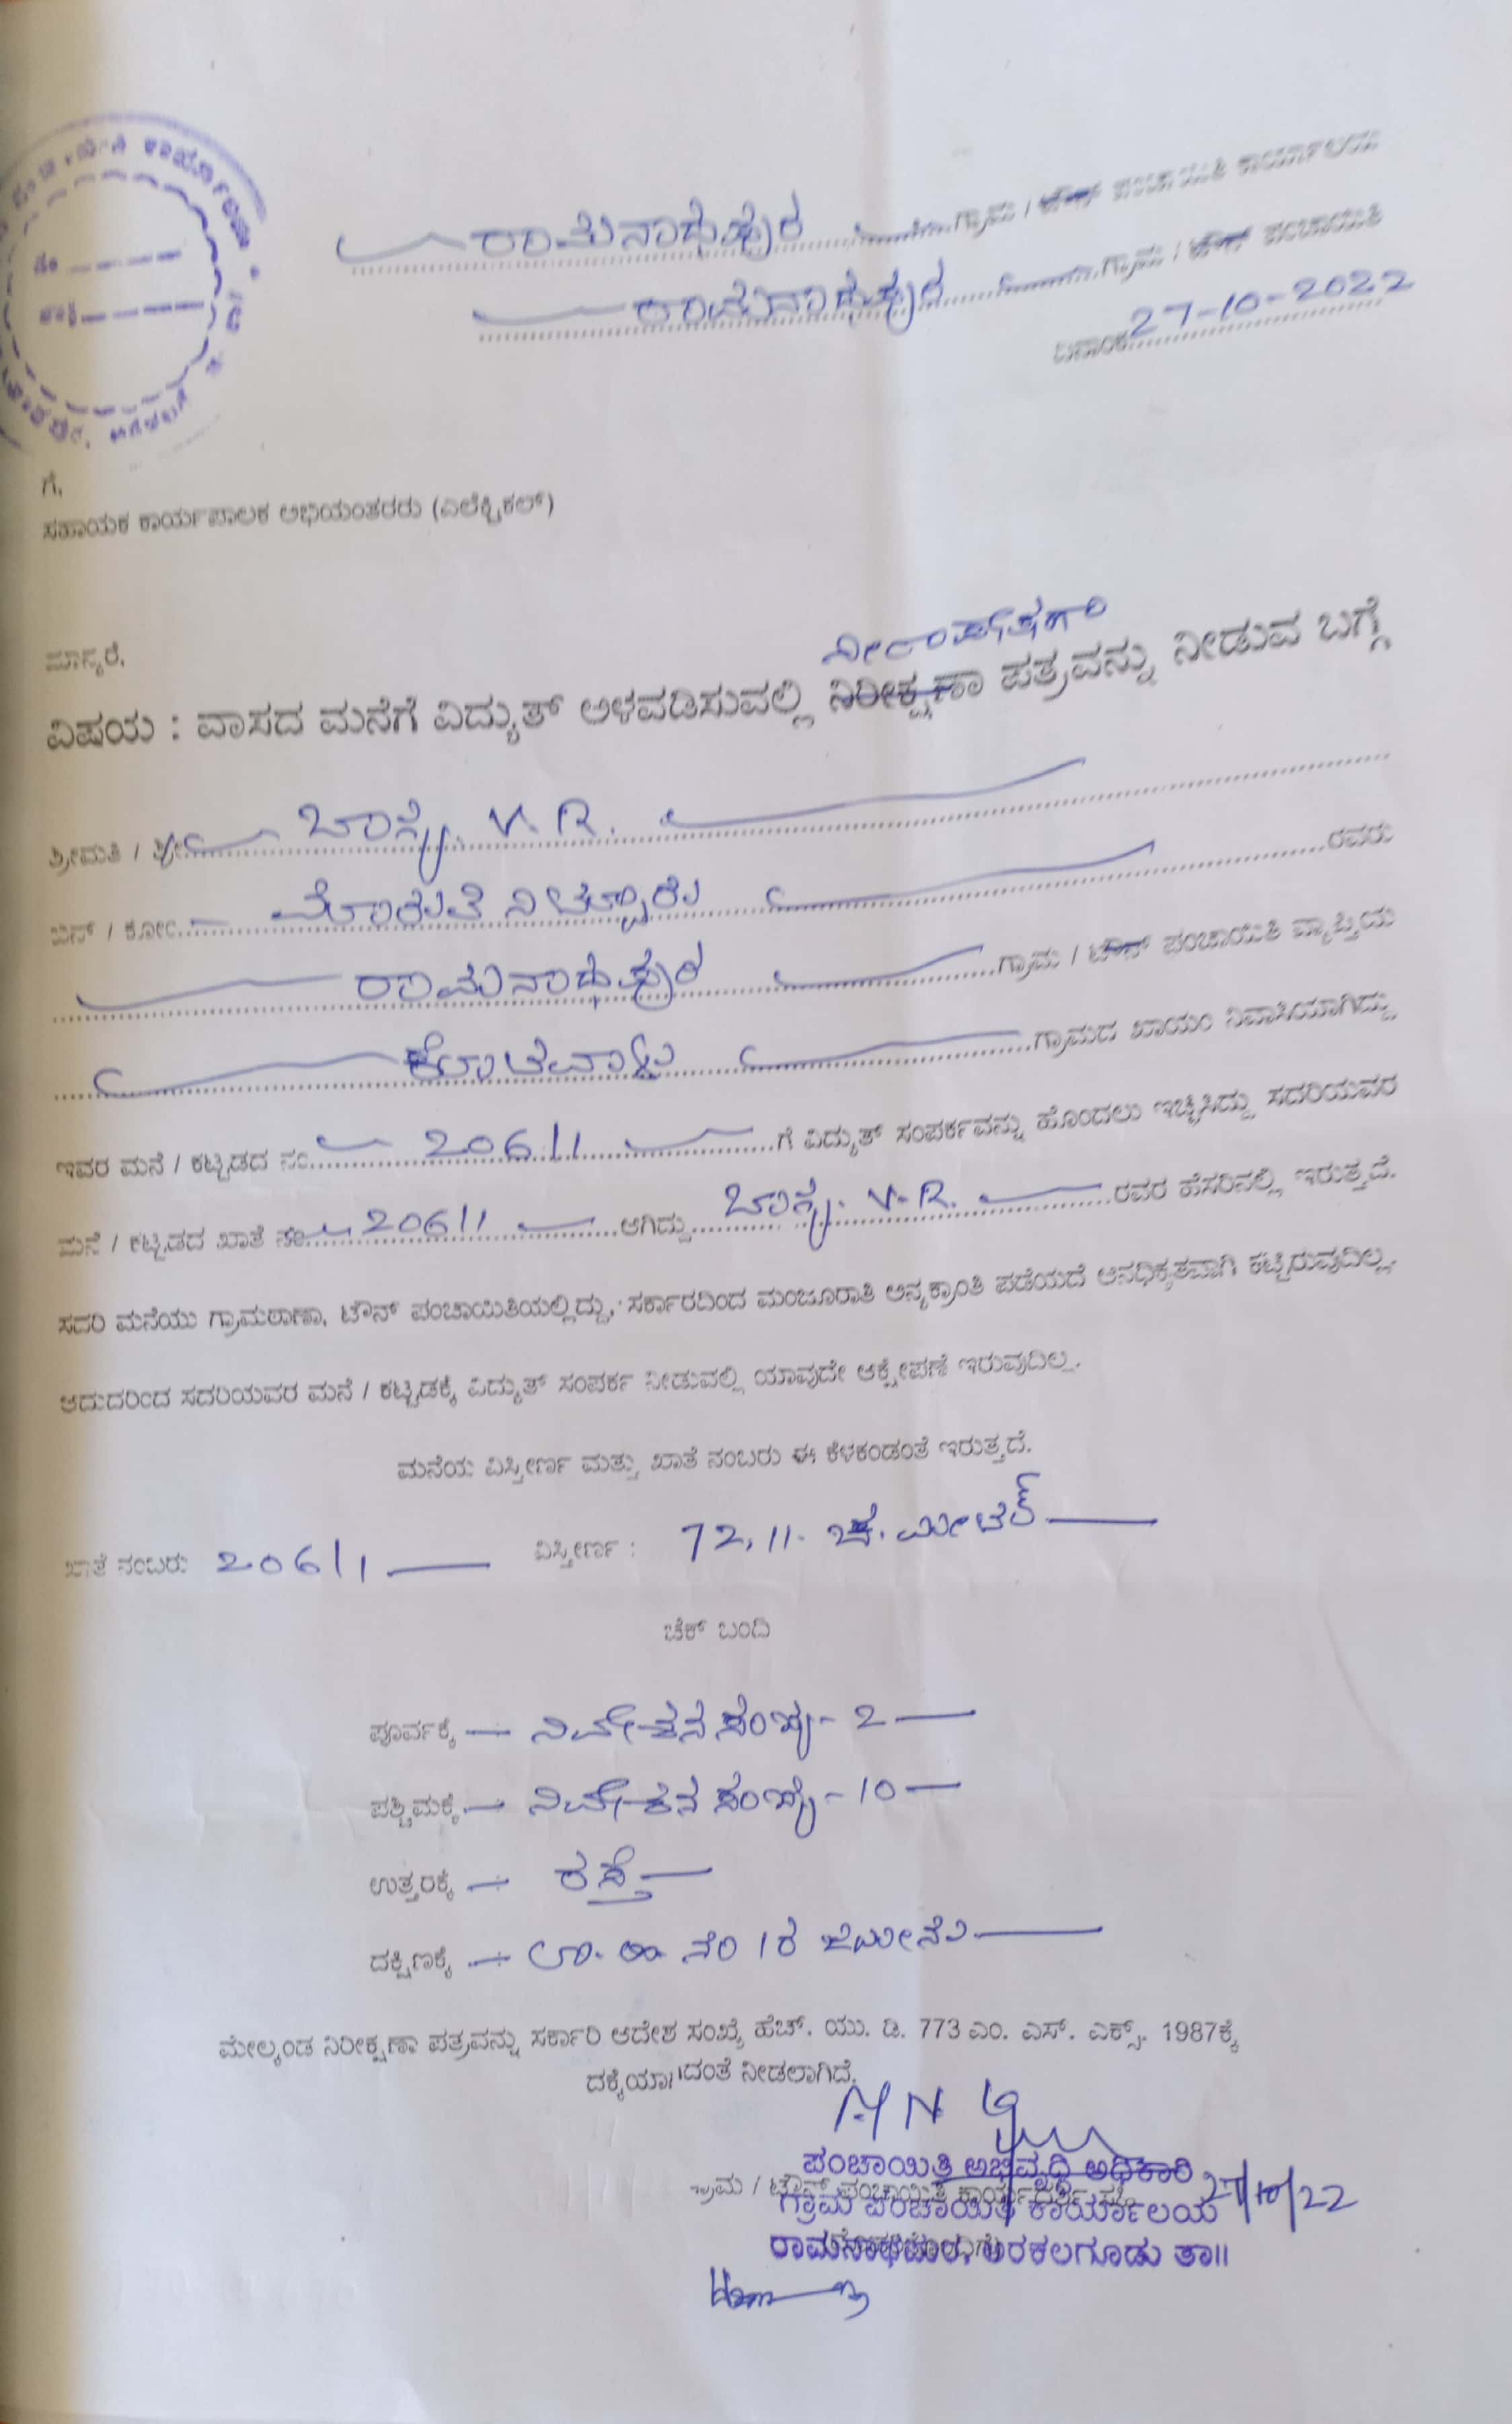 ರಾಮನಾಥಪುರ ಗ್ರಾಮ / ಟೌನ್ ಪಂಚಾಯಿತಿ ಕಾರ್ಯಾಲಯ
ರಾಮನಾಥಪುರ ಗ್ರಾಮ / ಟೌನ್ ಪಂಚಾಯಿತಿ
ದಿನಾಂಕ 27-10-2022
ಗೆ,
ಸಹಾಯಕ ಕಾರ್ಯಪಾಲಕ ಅಭಿಯಂತರರು (ಎಲೆಕ್ಟ್ರಿಕಲ್)
ಮಾನ್ಯರೆ,
ವಿಷಯ : ವಾಸದ ಮನೆಗೆ ವಿದ್ಯುತ್ ಅಳವಡಿಸುವಲ್ಲಿ ನಿರೀಕ್ಷಣಾ ಪತ್ರವನ್ನು ನೀಡುವ ಬಗ್ಗೆ
ಶ್ರೀಮತಿ / ಶ್ರೀ V. R.
ಬಿನ್ / ಕೋಂ ರವರು
ರಾಮನಾಥಪುರ ಗ್ರಾಮ / ಟೌನ್ ಪಂಚಾಯಿತಿ ವ್ಯಾಪ್ತಿಯ
ಗ್ರಾಮದ ಖಾಯಂ ನಿವಾಸಿಯಾಗಿದ್ದು
ಇವರ ಮನೆ / ಕಟ್ಟಡದ ನಂ. 206/1 ಗೆ ವಿದ್ಯುತ್ ಸಂಪರ್ಕವನ್ನು ಹೊಂದಲು ಇಚ್ಛಿಸಿದ್ದು ಸದರಿಯವರ
ಮನೆ / ಕಟ್ಟಡದ ಖಾತೆ ನಂ 206/1 ಆಗಿದ್ದು V. R. ರವರ ಹೆಸರಿನಲ್ಲಿ ಇರುತ್ತದೆ.
ಸದರಿ ಮನೆಯು ಗ್ರಾಮಠಾಣಾ, ಟೌನ್ ಪಂಚಾಯಿತಿಯಲ್ಲಿದ್ದು, ಸರ್ಕಾರದಿಂದ ಮಂಜೂರಾತಿ ಅನ್ಯಕ್ರಾಂತಿ ಪಡೆಯದೆ ಅನಧಿಕೃತವಾಗಿ ಕಟ್ಟಿರುವುದಿಲ್ಲ.
ಆದುದರಿಂದ ಸದರಿಯವರ ಮನೆ / ಕಟ್ಟಡಕ್ಕೆ ವಿದ್ಯುತ್ ಸಂಪರ್ಕ ನೀಡುವಲ್ಲಿ ಯಾವುದೇ ಆಕ್ಷೇಪಣೆ ಇರುವುದಿಲ್ಲ.
ಮನೆಯ ವಿಸ್ತೀರ್ಣ ಮತ್ತು ಖಾತೆ ನಂಬರು ಈ ಕೆಳಕಂಡಂತೆ ಇರುತ್ತದೆ.
ಖಾತೆ ನಂಬರು 206/1 ವಿಸ್ತೀರ್ಣ : 72.11 ಚ. ಮೀಟರ್
ಚೆಕ್ ಬಂದಿ
ಪೂರ್ವಕ್ಕೆ - ನಿವೇಶನ ಸಂಖ್ಯೆ - 2
ಪಶ್ಚಿಮಕ್ಕೆ - ನಿವೇಶನ ಸಂಖ್ಯೆ - 10
ಉತ್ತರಕ್ಕೆ - ರಸ್ತೆ
ದಕ್ಷಿಣಕ್ಕೆ - ನಂ 1ರ ಜಮೀನು
ಮೇಲ್ಕಂಡ ನಿರೀಕ್ಷಣಾ ಪತ್ರವನ್ನು ಸರ್ಕಾರಿ ಆದೇಶ ಸಂಖ್ಯೆ ಹೆಚ್. ಯು. ಡಿ. 773 ಎಂ. ಎಸ್. ಎಕ್ಸ್. 1987ಕ್ಕೆ
ನೀಡಲಾಗಿದೆ.
ಪಂಚಾಯಿತಿ ಅಭಿವೃದ್ಧಿ ಅಧಿಕಾರಿ
27/10/22
ಗ್ರಾಮ ಪಂಚಾಯಿತಿ ಕಾರ್ಯಾಲಯ
ರಾಮನಾಥಪುರ, ಅರಕಲಗೂಡು ತಾ॥